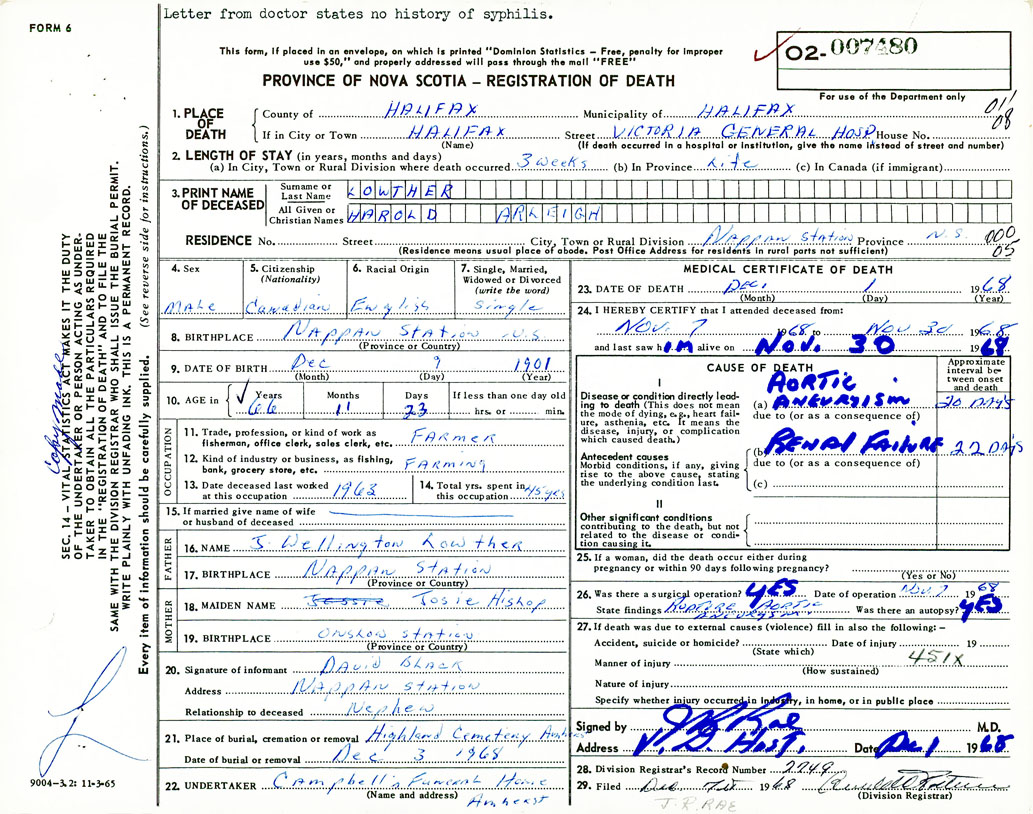 Letter from doctor states no history of syphilis.
FORM 6
This form, if placed in an envelope, on which is printed "Dominion Statistics – Free, penalty for improper
use $50," and properly addressed will pass through the mail "FREE"
02-007480
PROVINCE OF NOVA SCOTIA – REGISTRATION OF DEATH
For use of the Department only
011
08
1. PLACE OF DEATH
County of HALIFAX Municipality of HALIFAX
If in City or Town HALIFAX Street VICTORIA GENERAL HOSP House No.
(Name) (If death occurred in a hospital or institution, give the name instead of street and number)
2. LENGTH OF STAY (in years, months and days)
(a) In City, Town or Rural Division where death occurred 3 weeks (b) In Province Life (c) In Canada (if immigrant)
3. PRINT NAME OF DECEASED
Surname or Last Name LOWTHER
All Given or Christian Names HAROLD ARLEIGH
RESIDENCE No. Street City, Town or Rural Division Nappan Station Province N.S.
(Residence means usual place of abode. Post Office Address for residents in rural parts not sufficient)
000
05
4. Sex Male
5. Citizenship (Nationality) Canadian
6. Racial Origin English
7. Single, Married, Widowed or Divorced (write the word) Single
8. BIRTHPLACE Nappan Station N.S.
(Province or Country)
9. DATE OF BIRTH Dec 9 1901
(Month) (Day) (Year)
10. AGE in Years 66 Months 11 Days 23 If less than one day old hrs. or min.
OCCUPATION
11. Trade, profession, or kind of work as fisherman, office clerk, sales clerk, etc. FARMER
12. Kind of industry or business, as fishing, bank, grocery store, etc. FARMING
13. Date deceased last worked at this occupation 1963
14. Total yrs. spent in this occupation 45 yrs
15. If married give name of wife or husband of deceased
FATHER
16. NAME J. Wellington Lowther
17. BIRTHPLACE Nappan Station
(Province or Country)
MOTHER
18. MAIDEN NAME Jessie Josie Hishop
19. BIRTHPLACE Onslow Station
(Province or Country)
20. Signature of informant David Black
Address Nappan Station
Relationship to deceased Nephew
21. Place of burial, cremation or removal Highland Cemetery Amherst
Date of burial or removal Dec 3 1968
22. UNDERTAKER Campbell's Funeral Home
(Name and address) Amherst
MEDICAL CERTIFICATE OF DEATH
23. DATE OF DEATH Dec. 1 1968
(Month) (Day) (Year)
24. I HEREBY CERTIFY that I attended deceased from:
Nov. 7 1968 to Nov 30 1968
and last saw him alive on Nov. 30 1968
CAUSE OF DEATH
Approximate interval between onset and death
I
Disease or condition directly leading to death (This does not mean the mode of dying, e.g., heart failure, asthenia, etc. It means the disease, injury, or complication which caused death.)
(a) AORTIC ANEURYISM 30 DAYS
due to (or as a consequence of)
Antecedent causes
Morbid conditions, if any, giving rise to the above cause, stating the underlying condition last.
(b) RENAL FAILURE 22 DAYS
due to (or as a consequence of)
(c)
II
Other significant conditions contributing to the death, but not related to the disease or condition causing it.
25. If a woman, did the death occur either during pregnancy or within 90 days following pregnancy?
(Yes or No)
26. Was there a surgical operation? YES Date of operation Nov. 7 1968
State findings RUPTURE AORTIC ANEURYISM Was there an autopsy? YES
27. If death was due to external causes (violence) fill in also the following: –
Accident, suicide or homicide? Date of injury 19
(State which) 451X
Manner of injury
(How sustained)
Nature of injury
Specify whether injury occurred in industry, in home, or in public place
Signed by J R Rae M.D.
Address V. G. Hosp. Date Dec 1 1968
28. Division Registrar's Record Number 2749
29. Filed Dec 1968
(Division Registrar)
J.R. RAE
SEC. 14 – VITAL STATISTICS ACT MAKES IT THE DUTY
OF THE UNDERTAKER OR PERSON ACTING AS UNDER-
TAKER TO OBTAIN ALL THE PARTICULARS REQUIRED
IN THE "REGISTRATION OF DEATH" AND TO FILE THE
SAME WITH THE DIVISION REGISTRAR WHO SHALL ISSUE THE BURIAL PERMIT.
WRITE PLAINLY WITH UNFADING INK. THIS IS A PERMANENT RECORD.
Every item of information should be carefully supplied. (See reverse side for instructions.)
Copy made
9004–3.2: 11-3-65